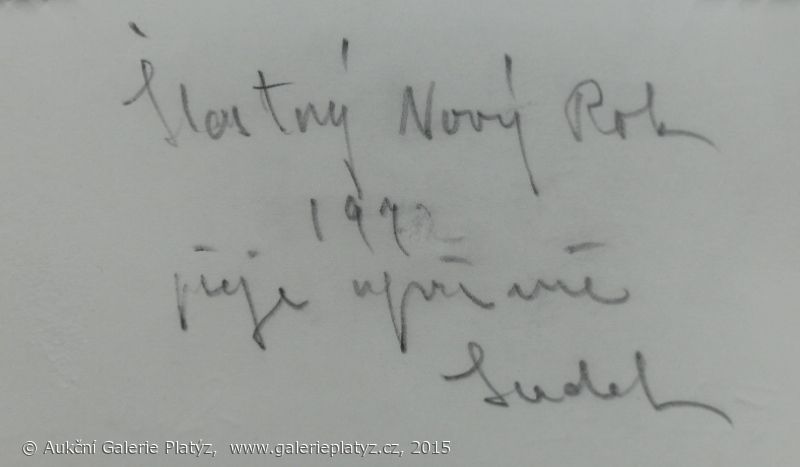 Šťastný Nový Rok
1972
přeje upřímně
Sudek
© Aukční Galerie Platýz, www.galerieplatyz.cz, 2015